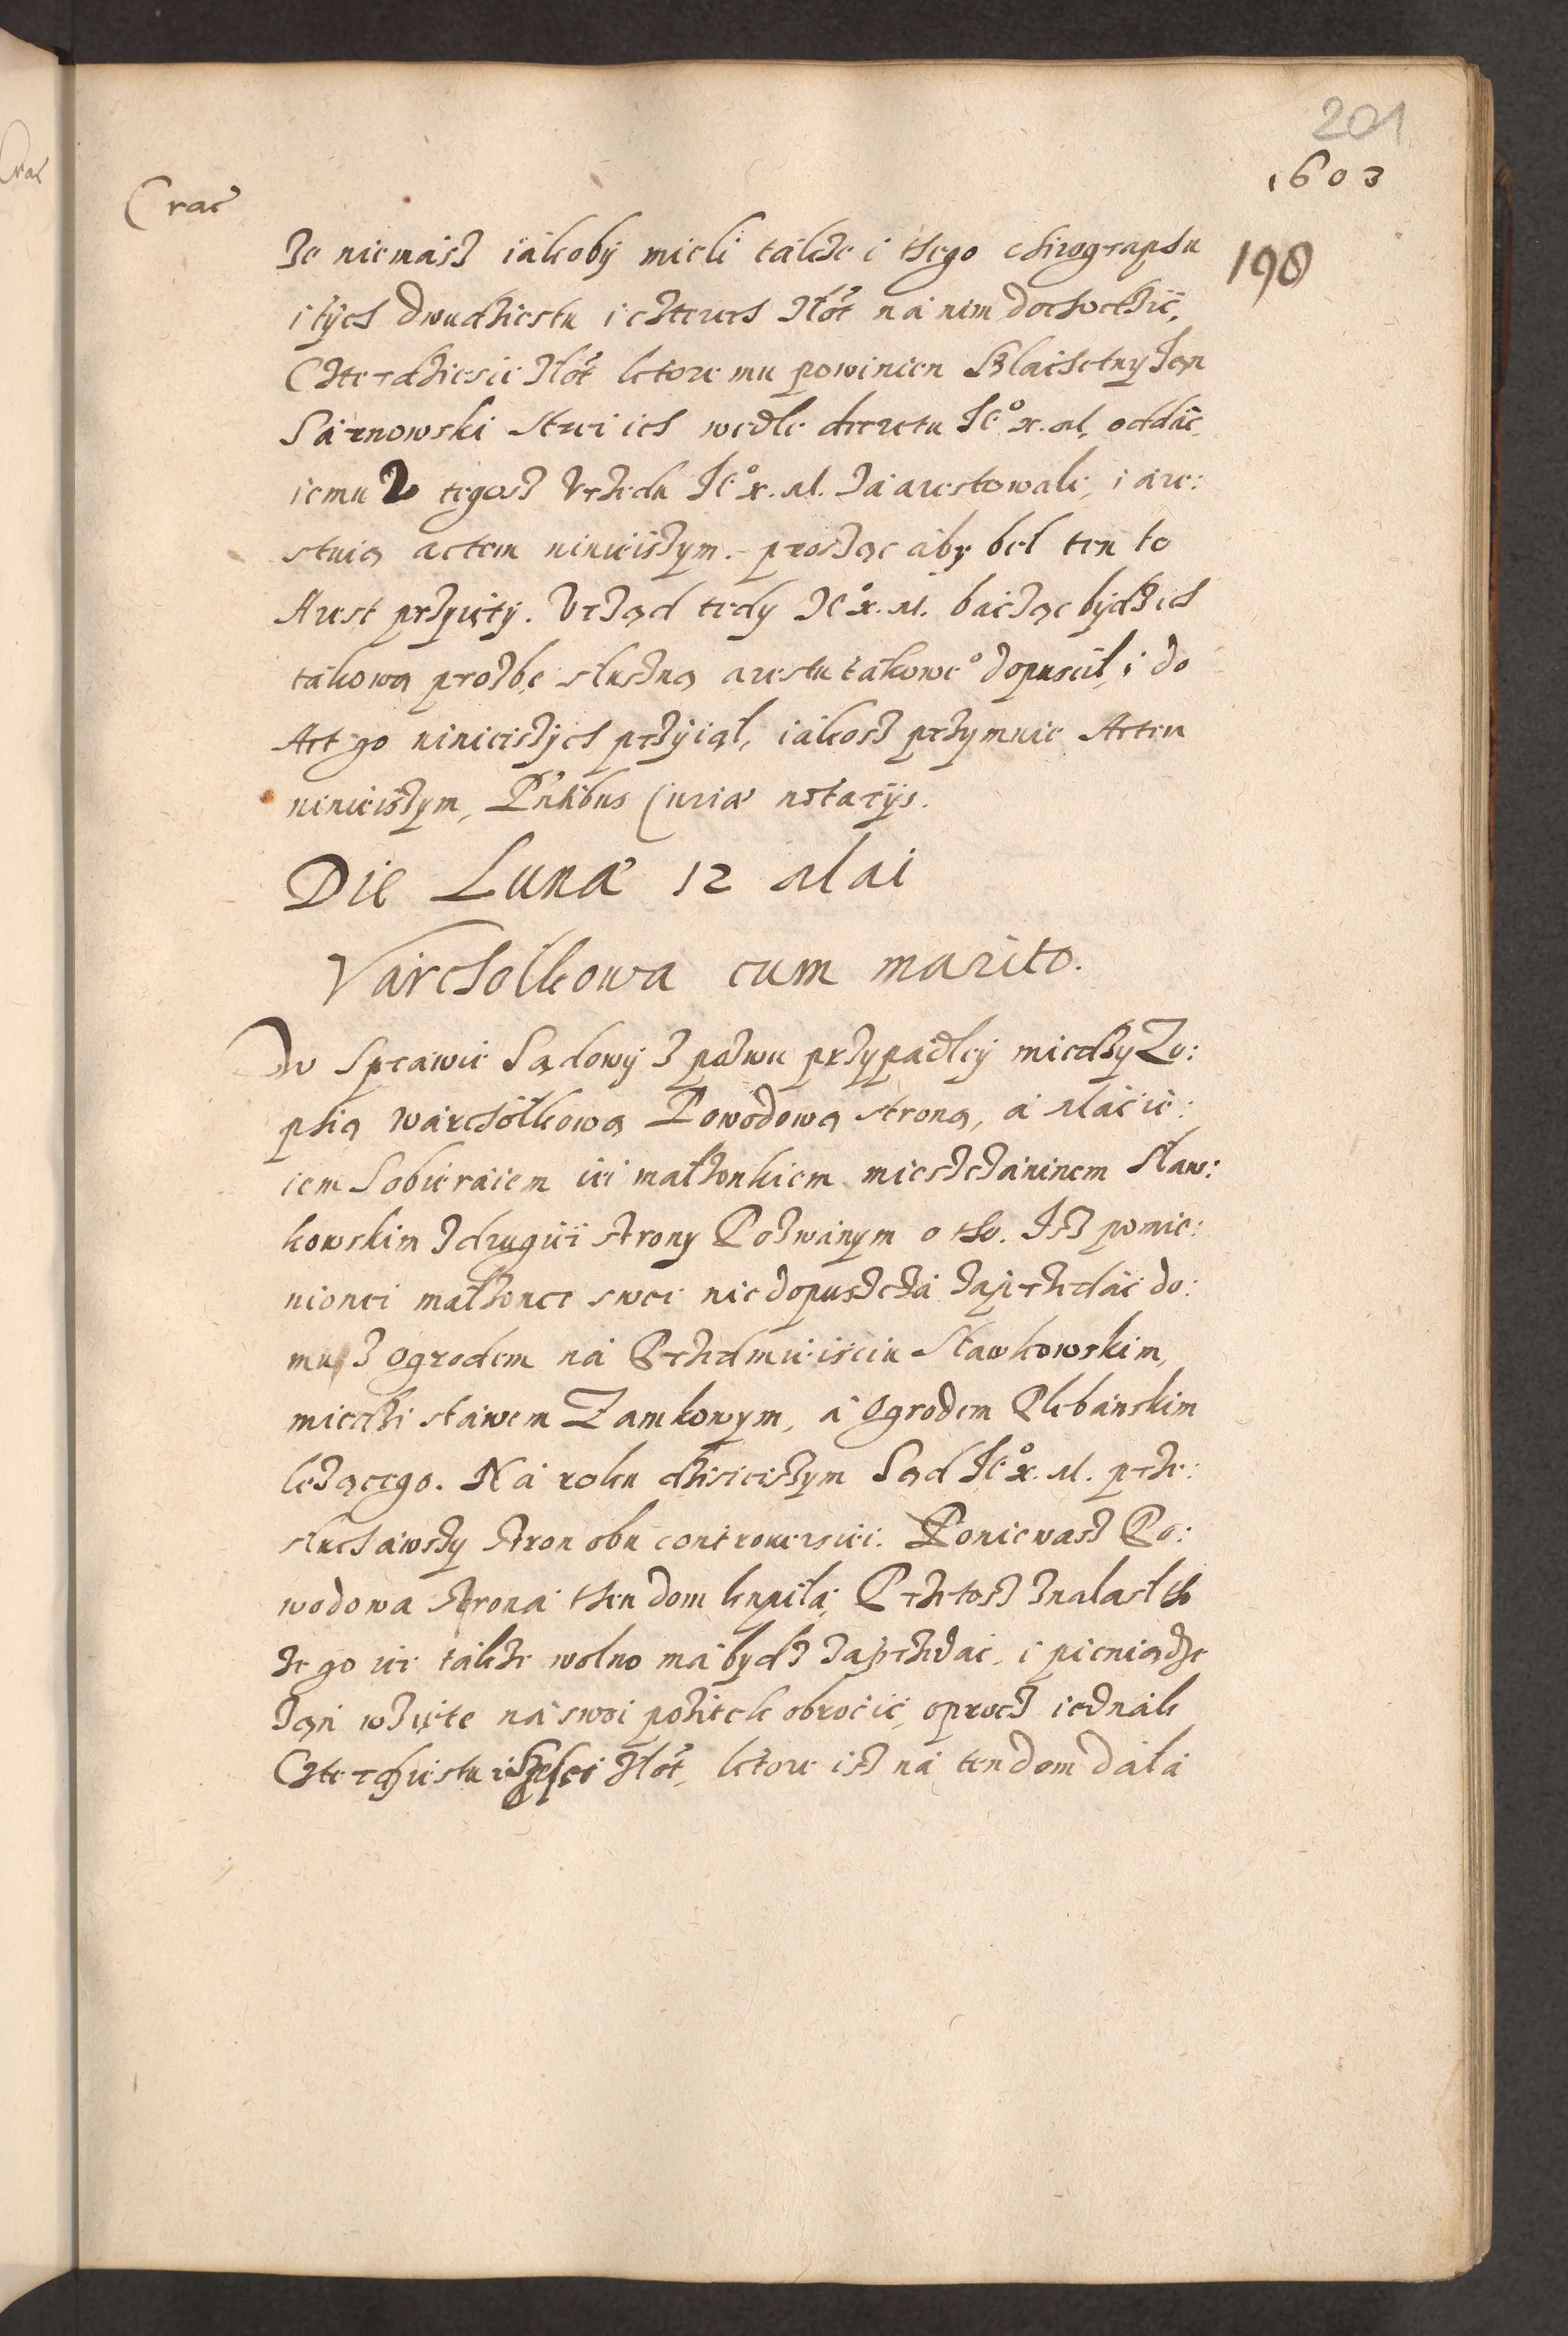 201
1603
Crac
198
że niemáiż iákobÿ mieli tákże i thego chirographu
i tÿch dwudziestu i czterech złot na nim dochodzić,
Czterdziesci złot ktore mu powinien Szlaichetny Jan
Sárnowski stei ich wedle decretu Je° x. M. oddáć
iemu v tegosz Vrzedu Je° x. M. záarestowali, i are:
stuią actem ninieiszym. prosząc áby bel ten to
Arest przyięty. Vrząd tedy Je° x. M. baicząc bÿdz ich
tákową prozbę słuszną arestu tákowe° dopuscil, i do
Act go ninieiszÿch przÿiąl, iákosz przymuie Actem
ninieiszym, Pntibus Curiæ notarÿs.
Die Lunæ 12 Mai
Várchołkowa cum marito.
W Sprawie Sądowÿ z pozwu przypadłeÿ miedzy Zo:
phią Wárchołkową Powodową stroną, á Máćie:
iem Sobieraiem iei małżonkiem mieszczáninem Sław:
kowskim z drugiei strony Pozwánym o tho. Isz pomie:
nionei małżonce swei nie dopuszcza záprzedáć do:
mu z ogrodem ná Przedmieisciu Sławkowskim,
miedzi stáwem Zamkowym, á Ogrodem Plebánskim
leżącego. Ná roku dzisieiszym Sąd Je° x. M. prze:
słuchawszy stron obu controuersiei. Poniewasz Po:
wodowa strona then dom kupiłá, Przetosz znalasł tho
że go iei tákże wolno má bydz záprzedáć, i pieniądze
záń wzięte ná swoi pożitek obroćić, oprocz iednák
Czterdziestu i szesci złot, ktore isz ná ten dom dáłá